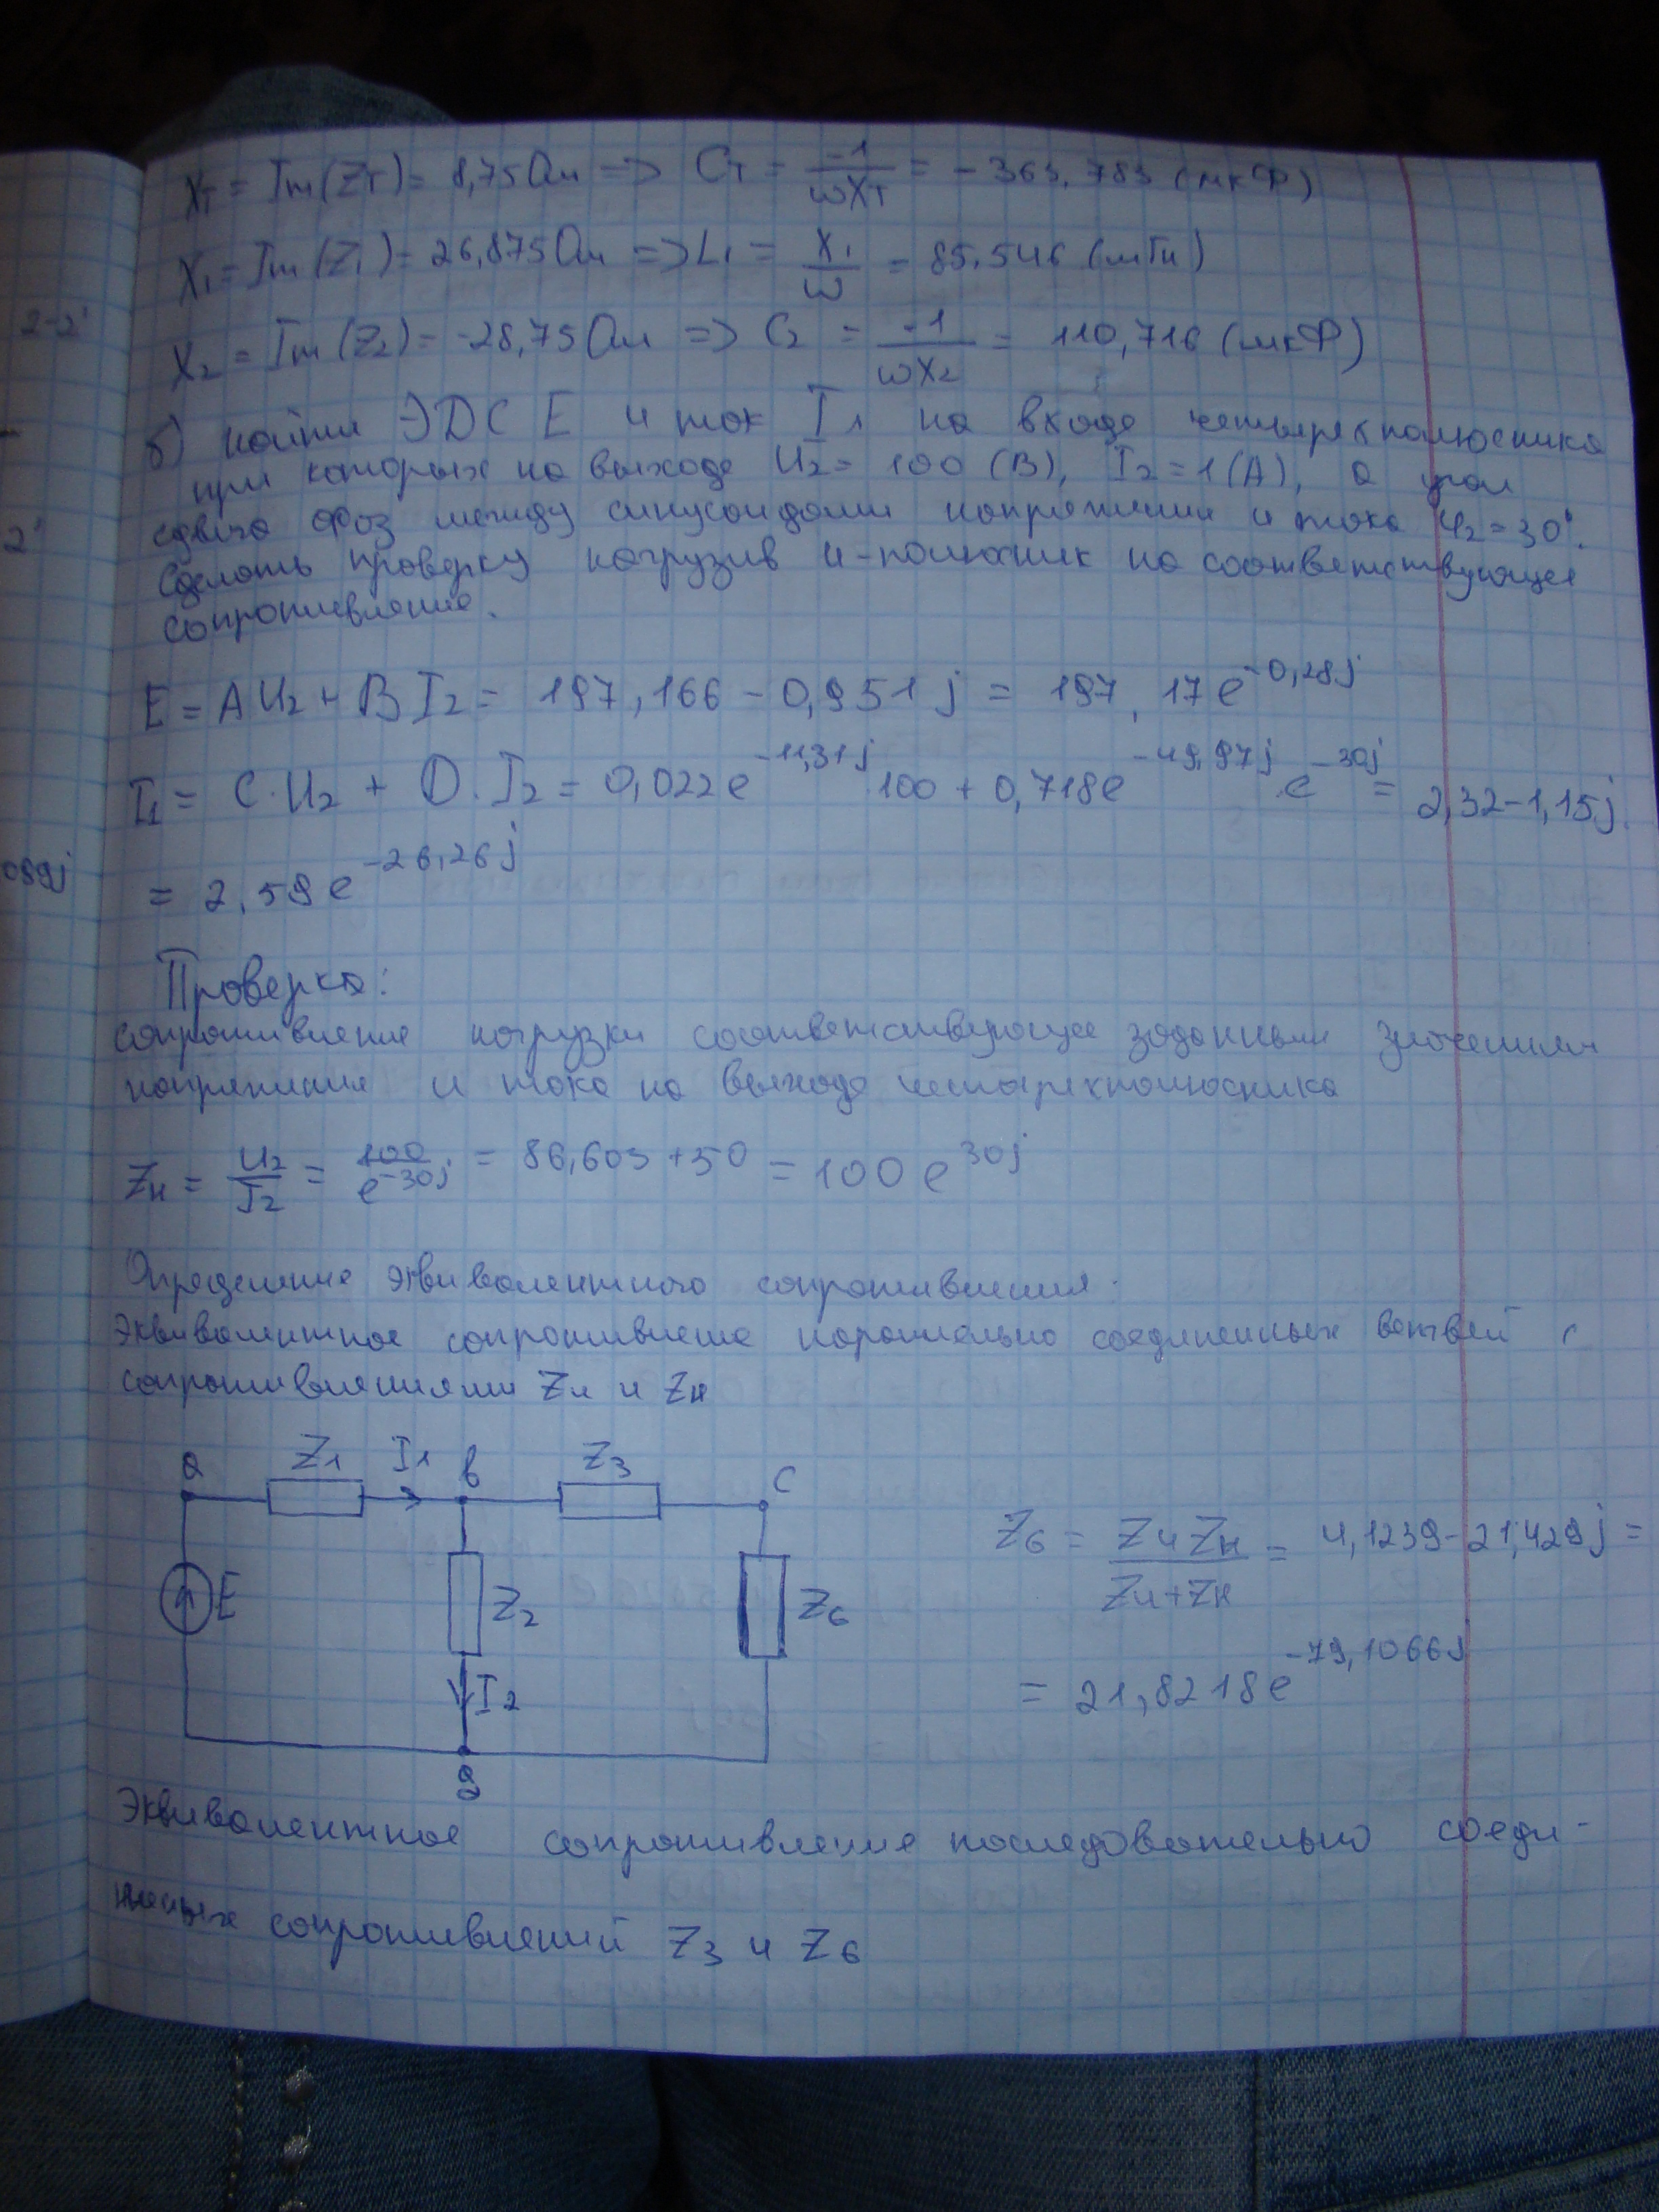 2-2'
2'
089j
Xт = Im(Zт) = 8,75 Ом => Cт = -1/ωXт = -363,783 (мкФ)
X1 = Im(Z1) = 26,875 Ом => L1 = X1/ω = 85,546 (мГн)
X2 = Im(Z2) = -28,75 Ом => C2 = -1/ωX2 = 110,716 (мкФ)
б) найти ЭДС E и ток I1 на входе четырехполюсника
при которых на выходе U2 = 100 (В), I2 = 1 (А), а угол
сдвига фаз между синусоидами напряжения и тока φ2 = 30°.
Сделать проверку нагрузив 4-полюсник на соответствующее
сопротивление.
E = AU2 + BI2 = 197,166 - 0,951j = 197,17e^-0,28j
I1 = C·U2 + D·I2 = 0,022e^-11,31j 100 + 0,718e^-49,97j · e^-30j = 2,32-1,15j
= 2,59e^-26,26j
Проверка:
сопротивление нагрузки соответствующее заданным значениям
напряжения и тока на выходе четырехполюсника
Zн = U2/I2 = 100/e^-30j = 86,603 + 50 = 100e^30j
Определение эквивалентного сопротивления.
Эквивалентное сопротивление паралельно соединенных ветвей с
сопротивлениями Z4 и Zн
a Z1 I1 b Z3 c
E Z2 Z6
I2
d
Z6 = Z4Zн/Z4+Zн = 4,1239-21,429j =
= 21,8218e^-79,1066j
Эквивалентное сопротивление последовательно соеди-
ненных сопротивлений Z3 и Z6